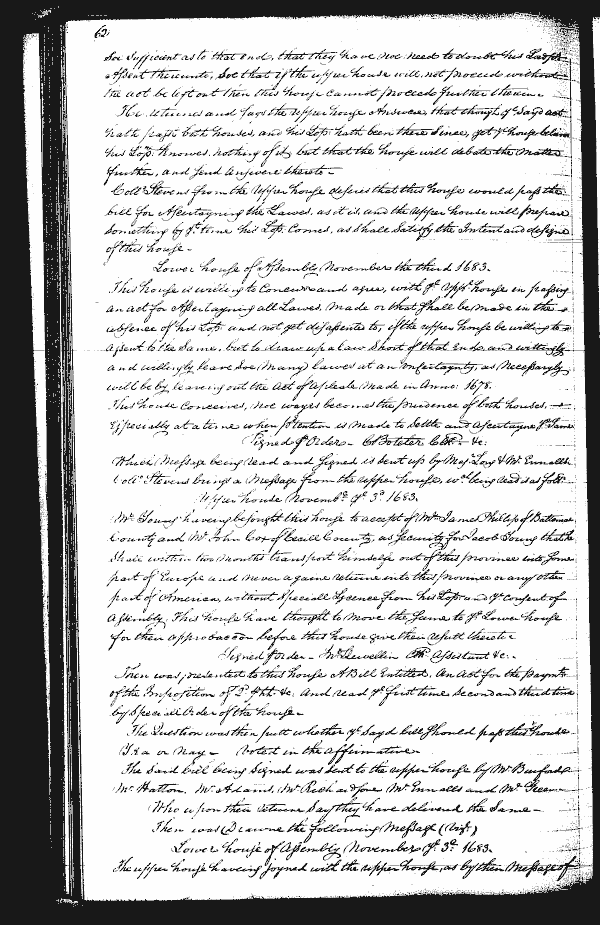 62
soe sufficient as to that end, that they have noe need to doubt his Ldsps
assent thereunto, Soe that if the upper house will not proceed without
the act be left out then this house cannot proceed further therein
He returnes and sayes the upper house Answers that though ye Sayd act
hath past both houses, and his Lop hath been there since, yet ye house believe
his Lop Knowes nothing of it, but that the house will debate the matter
further, and send Answere thereto -
Coll: Stevens from the Upper house desires that this house would pass the
bill for Ascertayning the Lawes, as it is, and the upper house will prepare
something by ye time his Lop Comes, as shall Satisfy the Intent and designe
of this house -
Lower house of Assembly November the third 1683.
This house is willing to Concurr and agree, with ye Uppr house in passing
an act for Ascertayning all Lawes, made or that shall be made in the
absence of his Lop and not yet disassented to, if the upper house be willing to
assent to the Same, but to draw up a Law Short of that End, and wittingly
and willingly leave Soe Many Lawes at an Uncertaynty, as Necessaryly
will be by leaving out the Act of Appeale Made in Anno: 1678.
This house Conceives, noe wayes becomes the prudence of both houses,
Especially at a time when pretention is made to Settle and Ascertayne ye Same
Signed p Order - Cl Boteler Clk - &c.
Which Message being read and Signed is sent up by Majr Long & Mr Ennalls
Coll. Stevens brings a Message from the upper house, wch being read is as follo
Upper house Novembr ye 3d 1683.
Mr Young having besought this house to accept of Mr James Phillips of Baltimore
County and Mr John Cox of Cecill County, as security for Jacob Young that he
Shall within two Months transport himself out of this Province into some
part of Europe and never againe returne into this province or any other
part of America, without Speciall Lycence from his Lop and ye Consent of
Assembly. This house have thought to move the Same to ye Lower house
for their approbacon before this house give their result therein
Signed p Order - Jno Llewellin Clk Assistant &c.
Then was presented to this house A Bill Entitled, An Act for the paymt
of the Imposition of 2d p hhd &c. And read ye first time second and third time
by Speciall Order of the house -
The Question was then putt whether ye Sayd bill Should pass this house
Yea or Nay - Voted in the affirmative
The Said bill being Signed was sent to the upper house by Mr Burford
Mr Hatton, Mr Adams, Mr Rich and Mr Ennalls and Mr Green
Who upon their returne Say they have delivered the Same -
Then was Drawne the following Message (Vizt)
Lower house of Assembly November ye 3d 1683.
The upper house haveing joyned with the upper house, as by their Message of